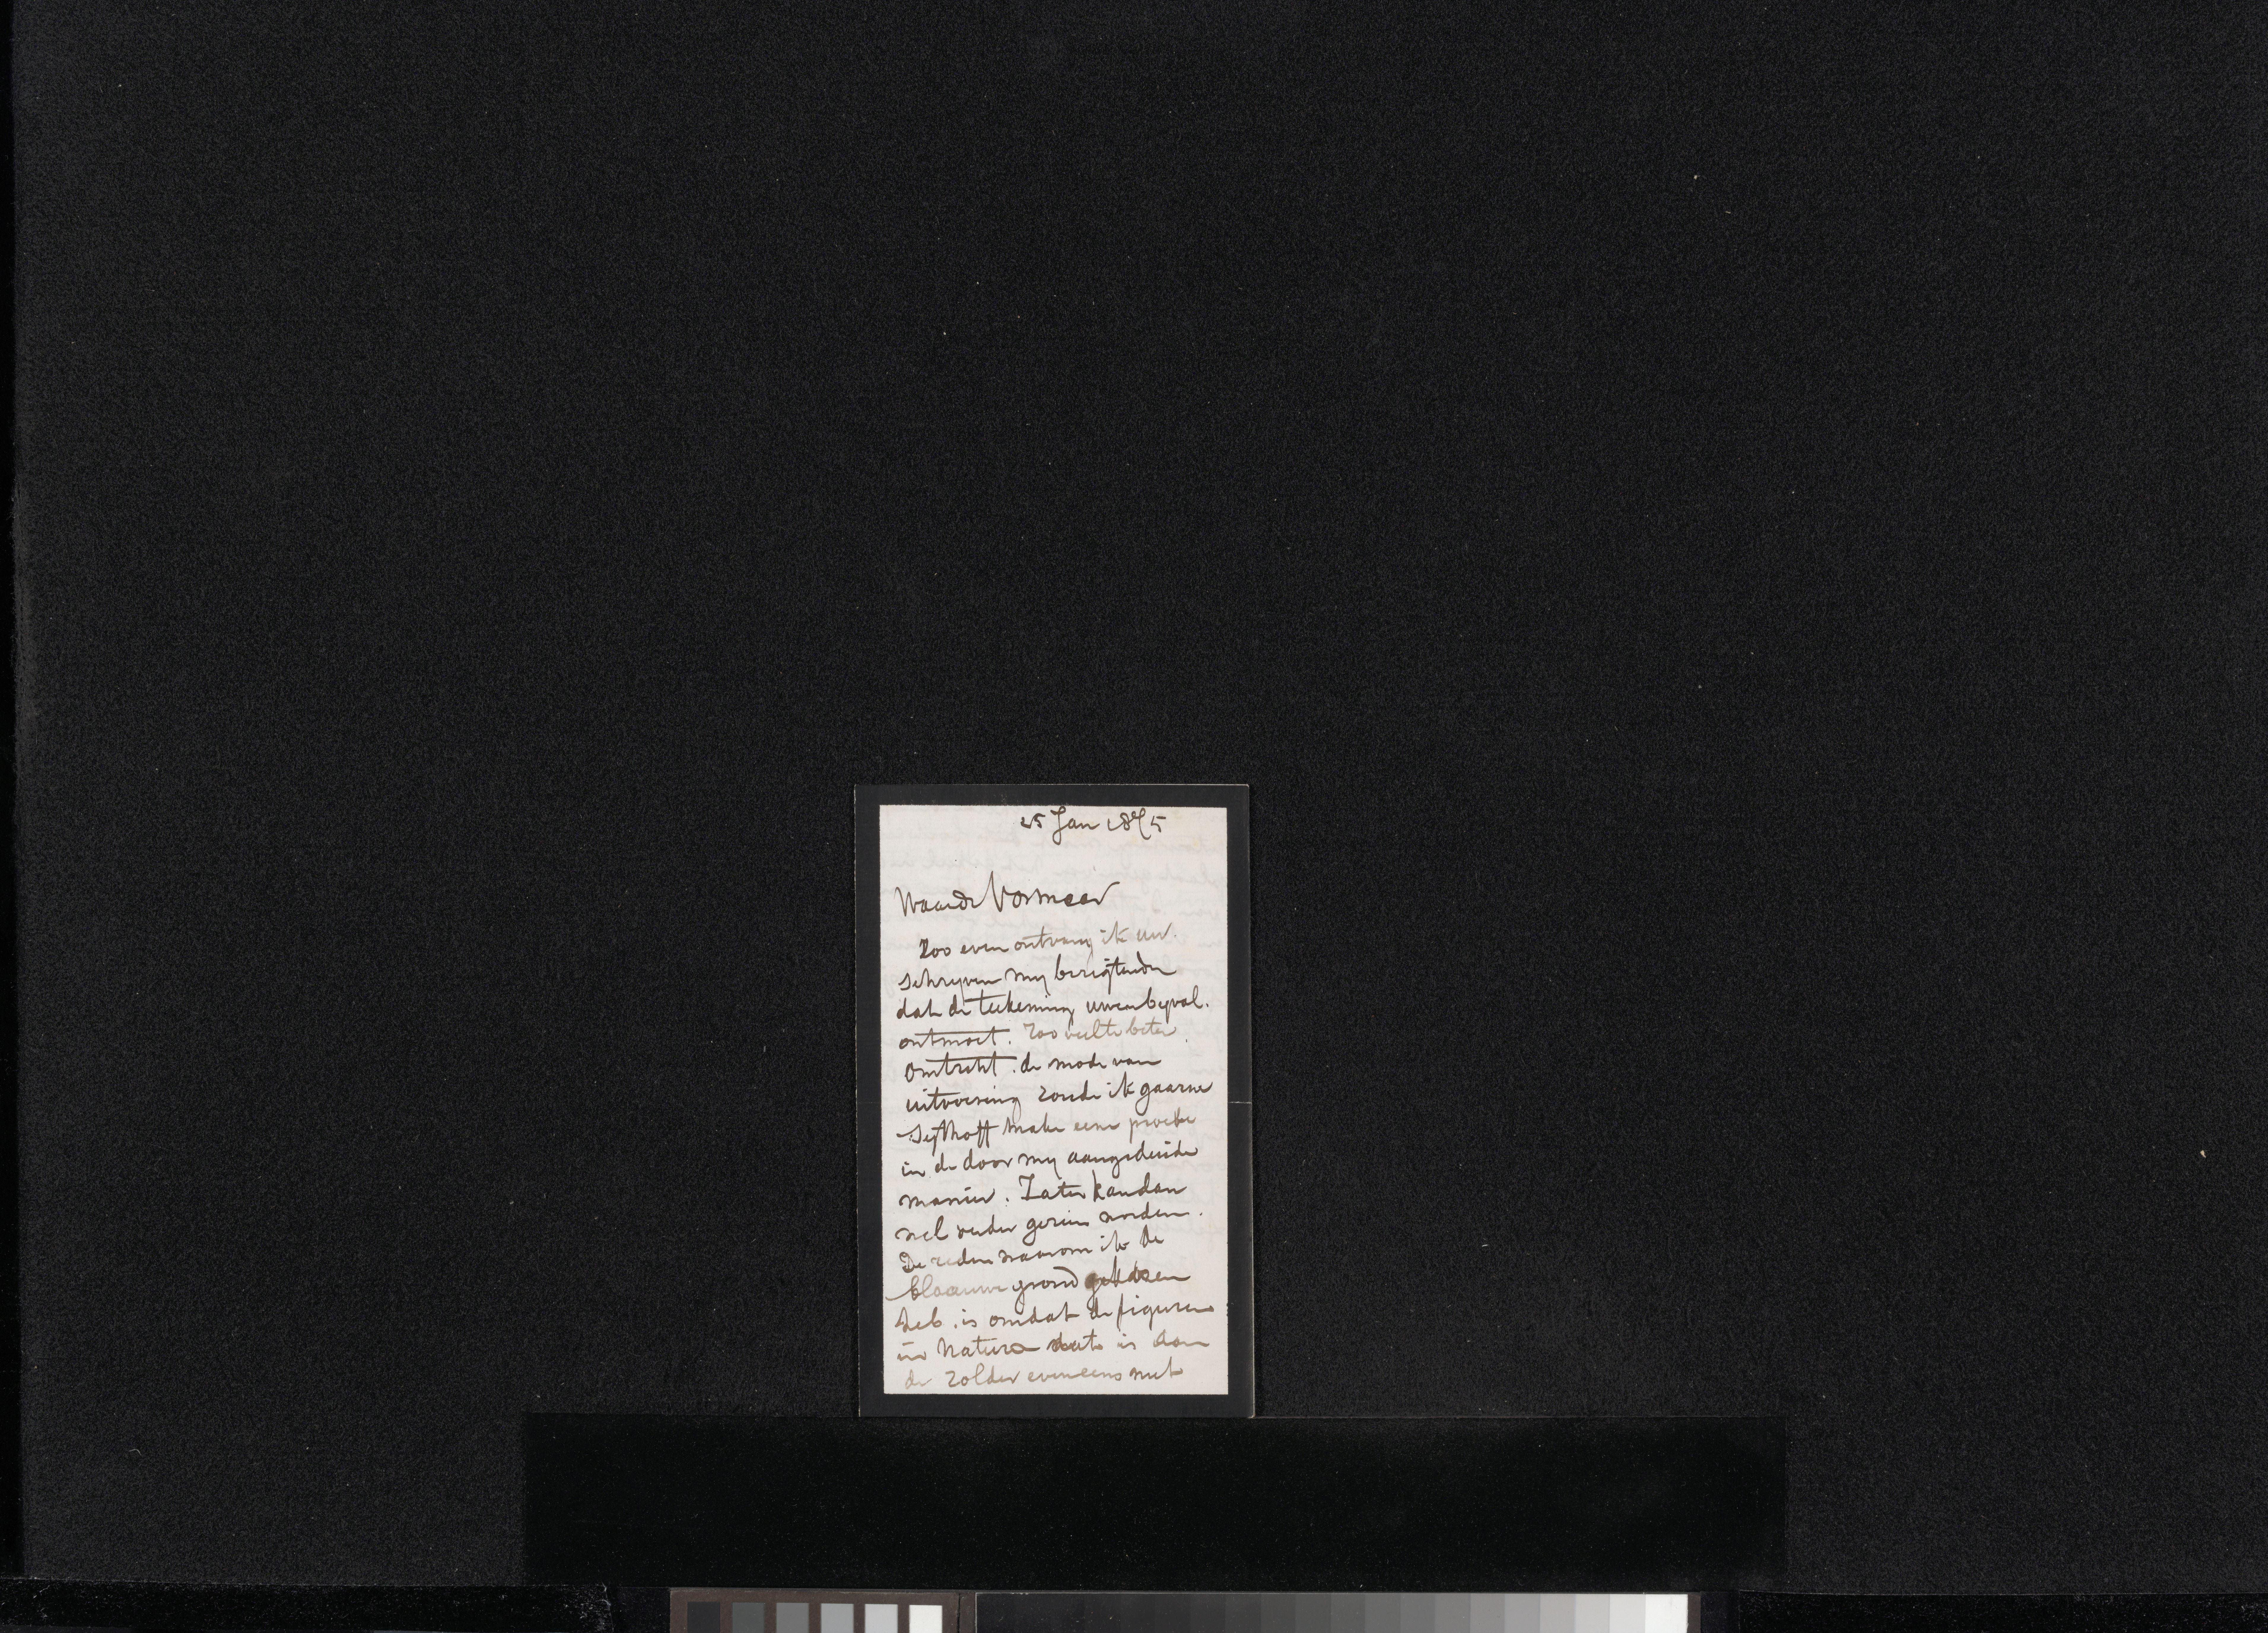 25 Jan 1875
Waarde Vosmaer
Zoo even ontvang ik uw.
schryven my berigtende
dat de teekening uwen byval.
ontmoet. Zoo veel te beter.
Omtrent. de mode van
uitvoering zoude ik gaarne
Sijthoff make eene proeve
in de door my aangeduide
manier. Later kan dan
wel verder gezien worden.
De reden waarom ik de
blaauwe grond gekozen
heb. is omdat de figuren
in Natura is aan
de zolder eveneens met